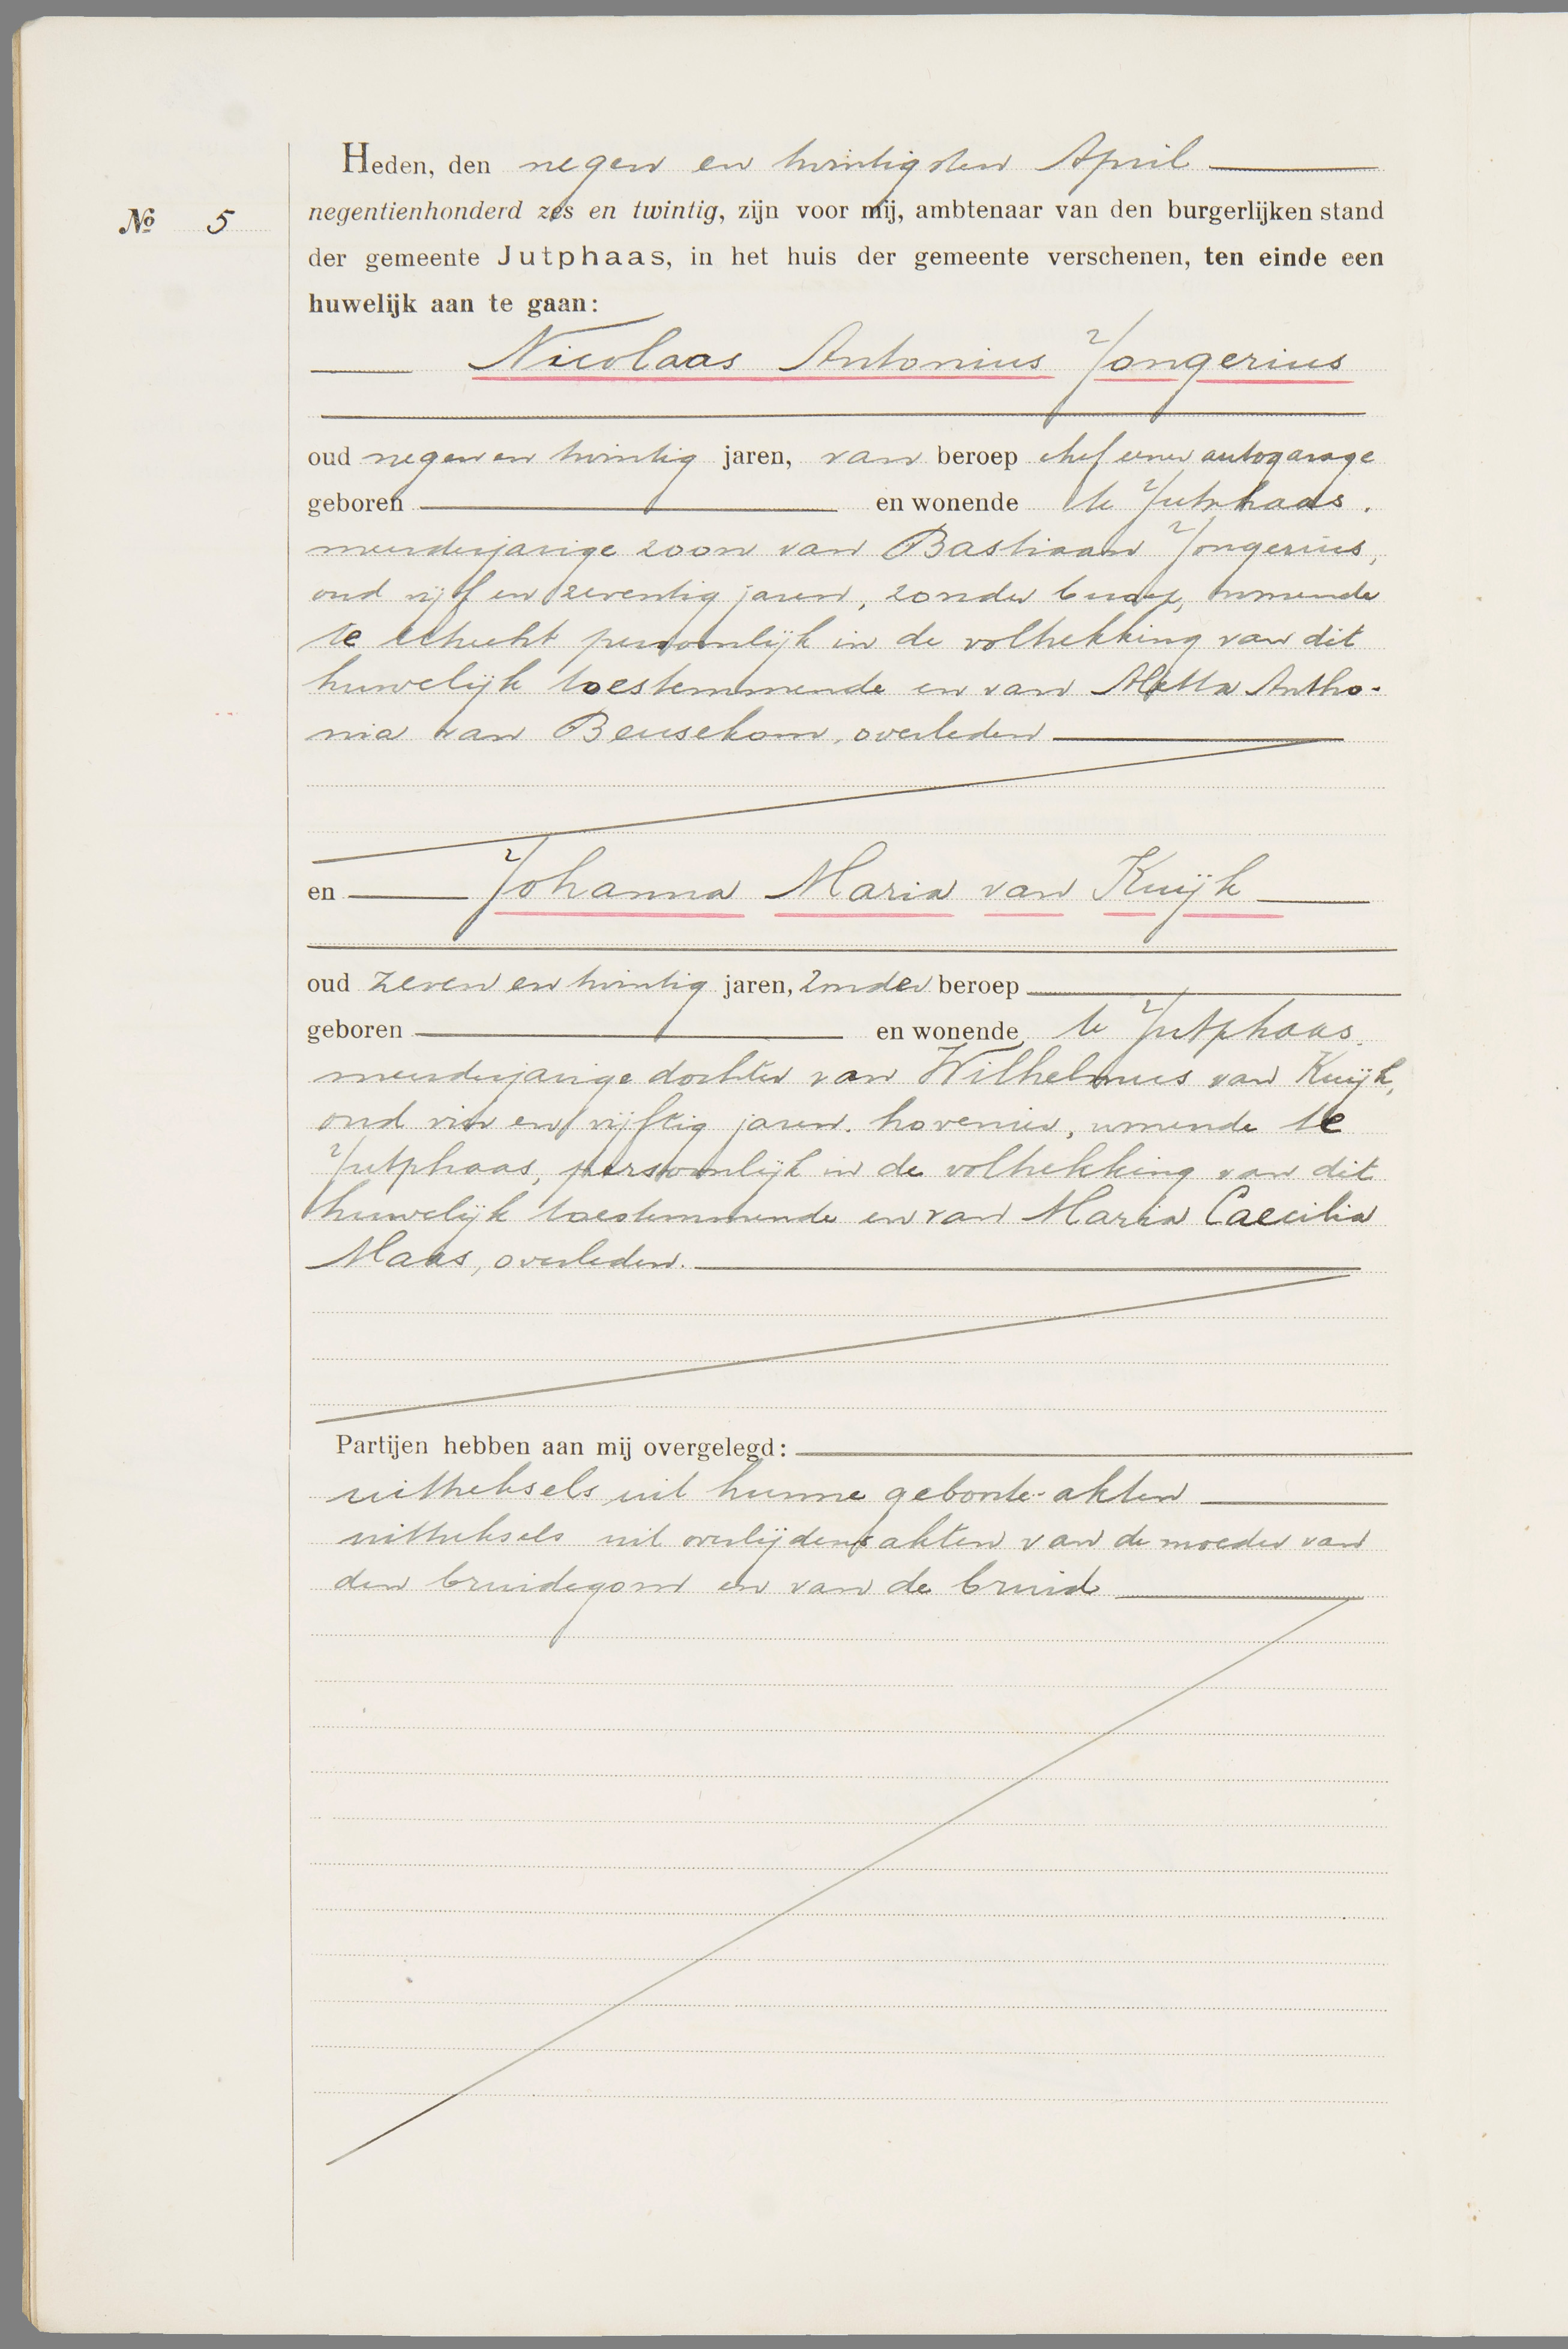 Heden, den negen en twintigsten April
№ 5
negentienhonderd zes en twintig, zijn voor mij, ambtenaar van den burgerlijken stand
der gemeente Jutphaas, in het huis der gemeente verschenen, ten einde een
huwelijk aan te gaan:
Nicolaas Antonius Jongerius
oud negen en twintig jaren, van beroep chef eener autogarage
geboren en wonende te Jutphaas.
meerderjarige zoon van Bastiaan Jongerius,
oud vijf en zeventig jaren, zonder beroep, wonende
te Utrecht persoonlijk in de voltrekking van dit
huwelijk toestemmende en van Aletta Antho-
nia van Beusekom, overleden
en Johanna Maria van Kuijk
oud zeven en twintig jaren, zonder beroep
geboren en wonende te Jutphaas.
meerderjarige dochter van Wilhelmus van Kuijk,
oud vier en vijftig jaren, hovenier, wonende te
Jutphaas, persoonlijk in de voltrekking van dit
huwelijk toestemmende en van Maria Caecilia
Maas, overleden.
Partijen hebben aan mij overgelegd:
uittreksels uit hunne geboorte-akten
uittreksels uit overlijdensakten van de moeder van
den bruidegom en van de bruid